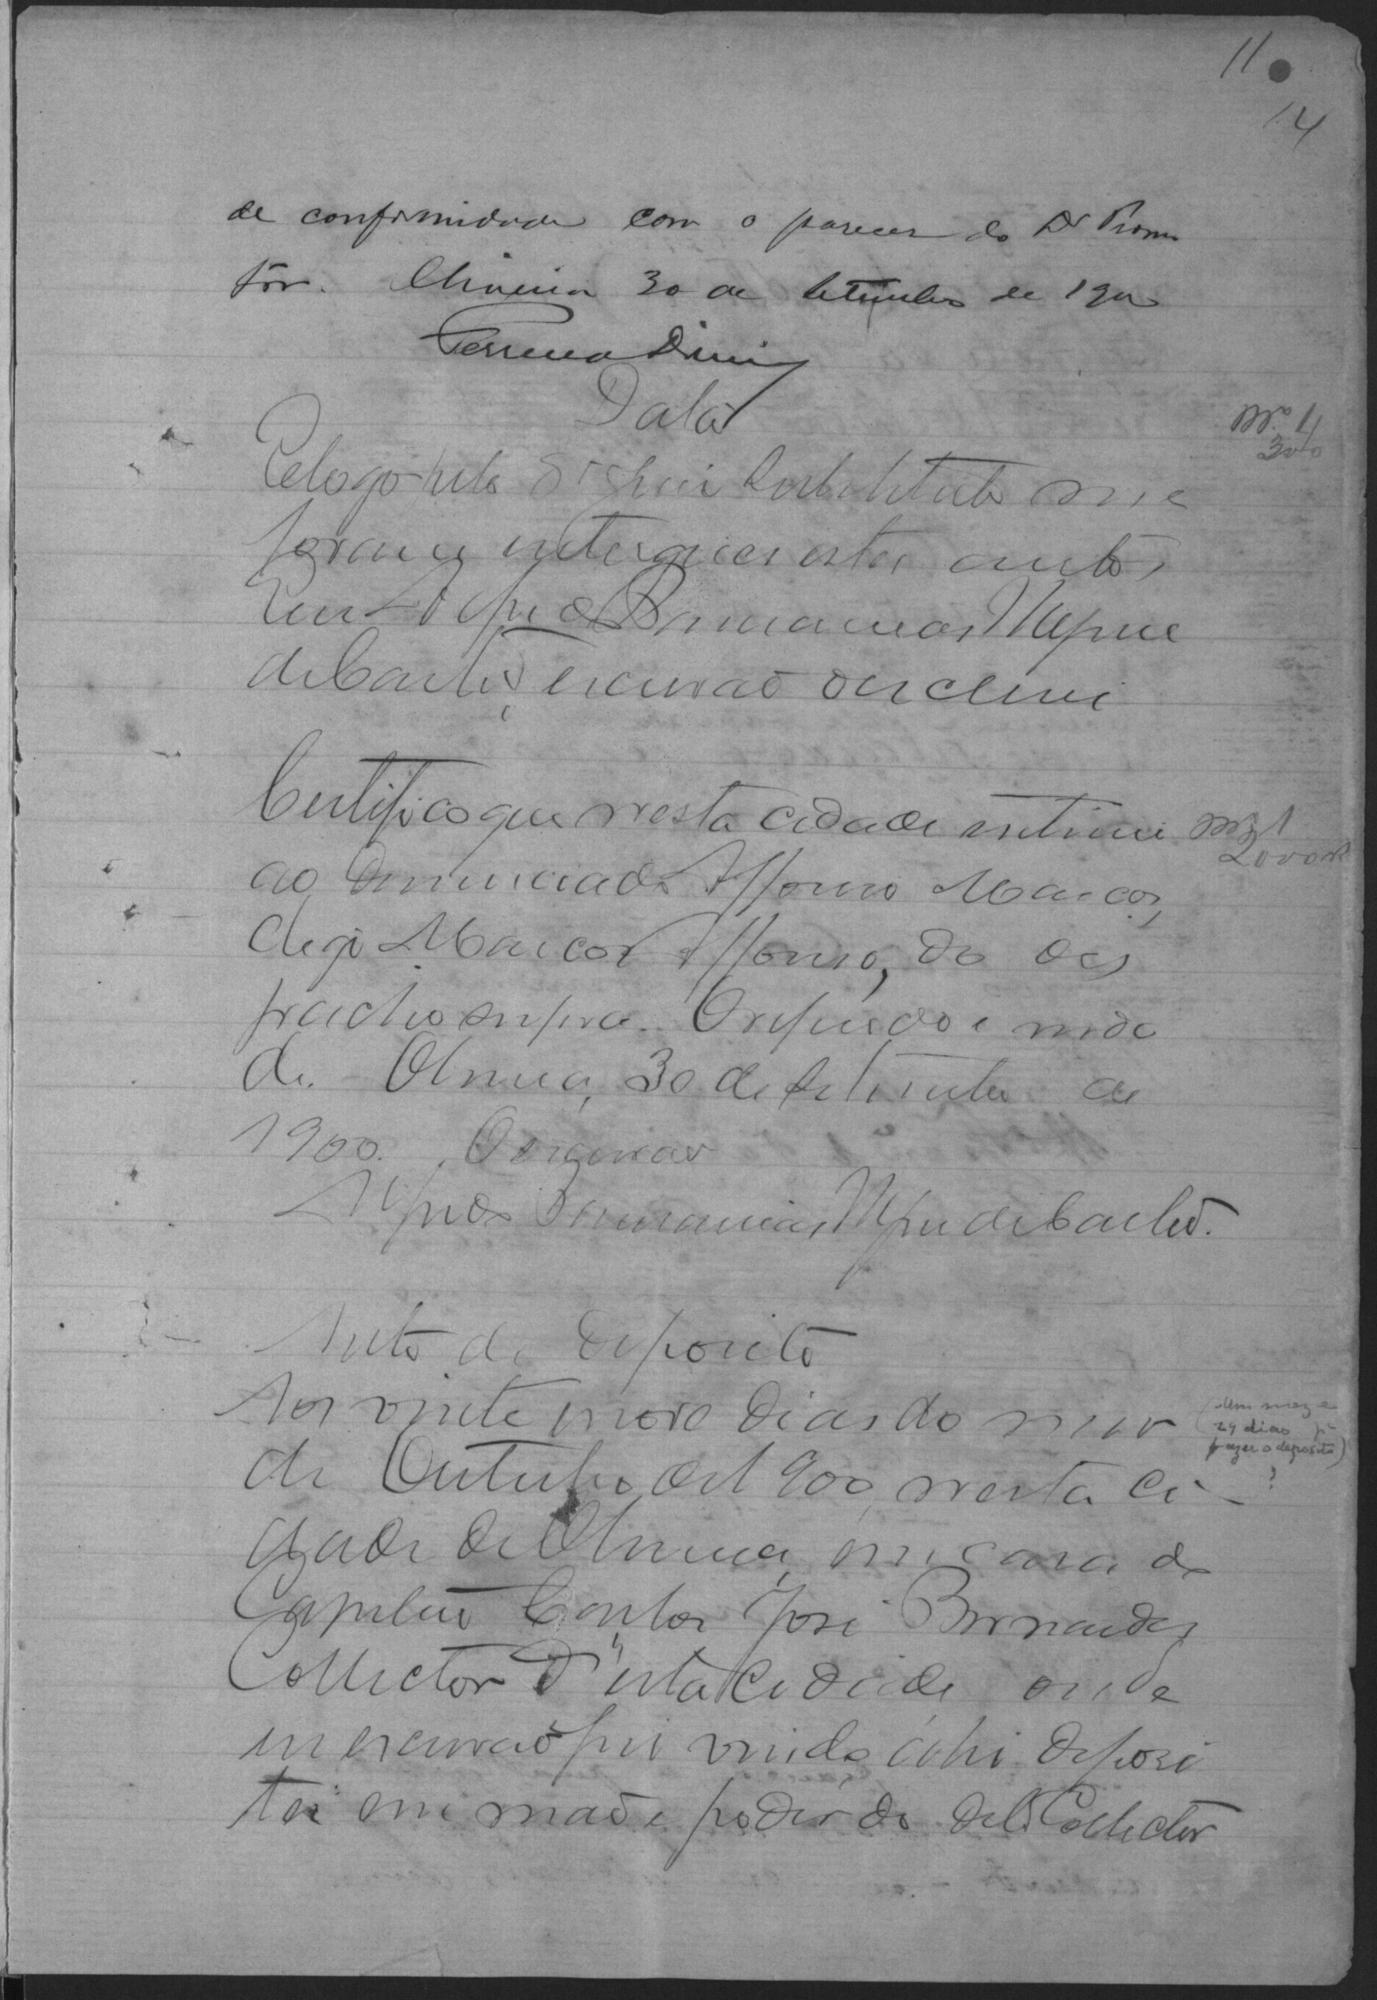 11
14
de conformidade com o parecer do Dr Promo
tor. Oliveira 30 de Setembro de 1900
Ferreira Diniz
Data
E logo pelo Dr Juiz Substituto me
foram entregues estes autos
Eu
de Castro, escrivão escrevi
Certifico que nesta cidade intimei
ao denunciado Affonso Marcos,
digo Marcos Affonso, do des
pacho supra. O referido é verda
de. Oliveira, 30 de Setembro de
1900. O escrivão
de Castro.
Auto de deposito
Aos vinte nove dias do mez
de Outubro de 1900, nesta ci-
dade de Oliveira, em casa do
Capitão Carlos José Bernardes
Collector d'esta cidade, onde
eu escrivão fui vindo e ahi deposi
tei em mão e poder do dito Collector
Nº 1
300
Nº 1
2000
(um mez e
29 dias pª
fazer o deposito)
?